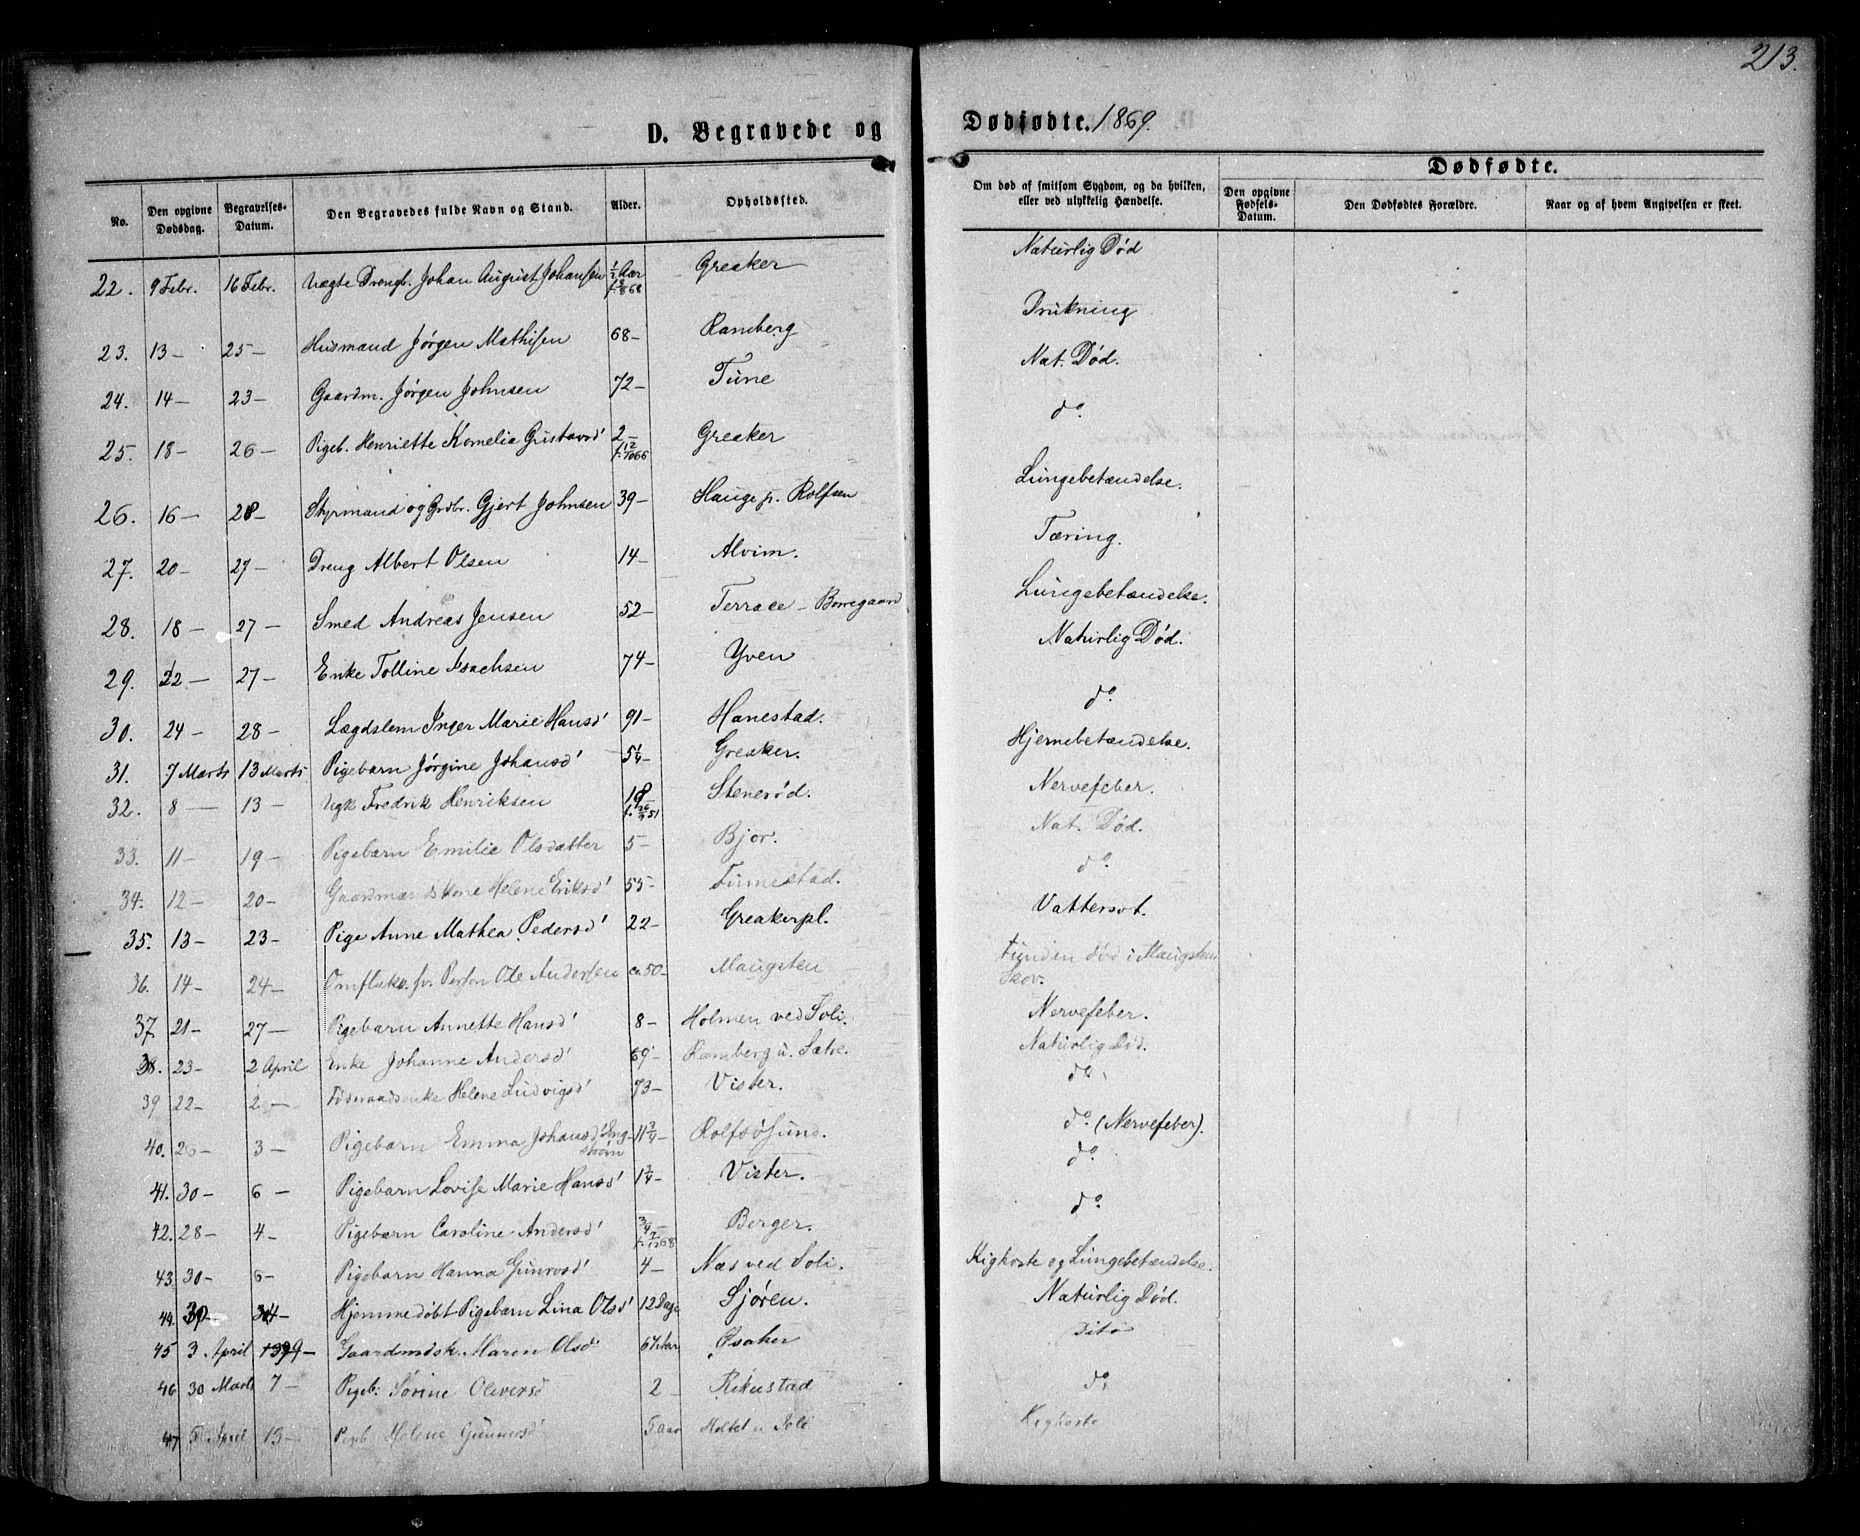 213.
D. Begravede og Dødfødte. 1869.
No. Den opgivne Dødsdag. Begravelses-Datum. Den Begravedes fulde Navn og Stand. Alder. Opholdssted. Om død af smitsom Sygdom, og da hvilken, eller ved ulykkelig Hændelse. Dødfødte.
Den opgivne Fødsels-Datum. Den Dødfødtes Forældre. Naar og af hvem Angivelsen er skeet.
22. 9 Febr. 16 Febr. Uægte Drengb. Johan August Johansen Aar 868 Greaker Naturlig Død
23. 13 – 25 – Husmand Jørgen Mathisen 68 – Ramberg Drukning
24. 14 – 23 – Gaardm. Jørgen Johnsen 72 – Tune Nat. Død.
25. 18 – 26 – Pigeb. Henriette Kornelia Gustavsd' 2 – f. 12/10 66 Greaker do
26. 16 – 28 – Styrmand og Grdbr. Gjert Johnsen 39 – Hauge p. Rolfsøen Lungebetændelse.
27. 20 – 27 – Dreng Albert Olsen 14 – Alvim. Tæring.
28. 18 – 27 – Smed Andreas Jensen 52 – Terrace – Borregaard Lungebetændelse.
29. 22 – 27 – Enke Tolline Isachsen 74 – Yven Naturlig Død.
30. 24 – 28 – Lægdslem Inger Marie Hansd' 91 – Hanestad. do
31. 7 Marts 13 Marts Pigebarn Jørgine Johansd' 5 1/4 – Greaker. Hjernebetændelse.
32. 8 – 13 – Ugk Fredrik Henriksen 18 51 Stenerød. Nervefeber.
33. 11 – 19 – Pigebarn Emilie Olsdatter 5 – Bjor. Nat. Død.
34. 12 – 20 – Gaardmandskone Helene Eriksd' 55 – Tunestad. do
35. 13 – 23 – Pige Anne Mathea Pedersd' 22 – Greakerpl. Vattersot.
36. 14 – 24 – Omflakk. Person Ole Andersen ca 50 – Maugsten Funden død i Maugsten Skov.
37. 21 – 27 – Pigebarn Annette Hansd' 8 – Holmen ved Soli. Nervefeber.
38. 23 – 2 April Enke Johanne Andersd' 69 – Ramberg u. Sætre. Naturlig Død.
39 22 – 2 – Føderaadsenke Helene Ludvigsd' 73 – Vister. do
40. 26 – 3 – Pigebarn Emma Johansd' Eng-strøm 11 3/4 – Rolfsøsund. do (Nervefeber).
41. 30 – 6 – Pigebarn Lovise Marie Hansd' 1 3/4 – Vister. do
42. 28 – 4 – Pigebarn Caroline Andersd' 3/4 f. 7/12 68 Berger. do
43. 30 – 6 – Pigebarn Hanna Gunersd' 4 – Næs ved Soli. Kighoste og Lungebetændelse.
44. 30 – 4 – Hjemmedøbt Pigebarn Lina Olsd' 12 Dage Sjøren. Naturlig Død.
45 3 April 9 – Gaardmdsk. Maren Olsd' 67 Aar Øsaker Dito
46 30 Marts 7 – Pigeb: Sørine Oliversd 2 – Rekustad do
47 5 April 13 – Pigeb Helene Gunnersd' 5 Aar Holtet u Soli Kighoste